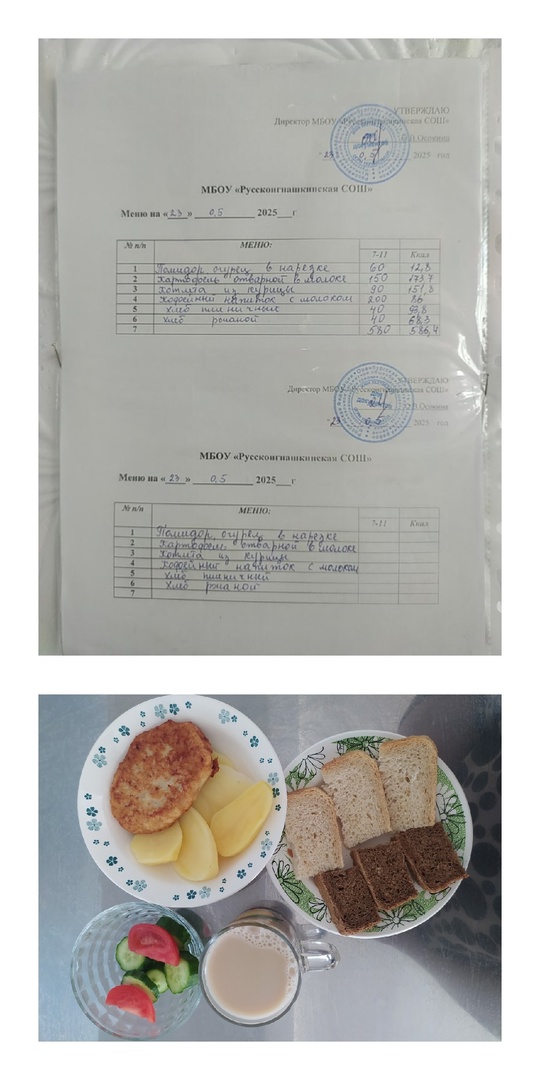 УТВЕРЖДАЮ
Директор МБОУ «Русскоигнашкинская СОШ»
О.В.Осокина
"23 0,5 2025 год
МБОУ «Русскоигнашкинская СОШ»
Меню на «23» 0,5 2025 г
№ п/п МЕНЮ: 7-11 Ккал
1 Помидор, огурец в нарезке 60 12,8
2 Картофель отварной в молоке 150 173,7
3 Котлета из курицы 90 151,8
4 Кофейный напиток с молоком 200 86
5 Хлеб пшеничный 40 93,8
6 Хлеб ржаной 40 68,3
7 580 586,4
УТВЕРЖДАЮ
Директор МБОУ «Русскоигнашкинская СОШ»
О.В.Осокина
"23 0,5 2025 год
МБОУ «Русскоигнашкинская СОШ»
Меню на «23» 0,5 2025 г
№ п/п МЕНЮ: 7-11 Ккал
1 Помидор, огурец в нарезке
2 Картофель отварной в молоке
3 Котлета из курицы
4 Кофейный напиток с молоком
5 Хлеб пшеничный
6 Хлеб ржаной
7